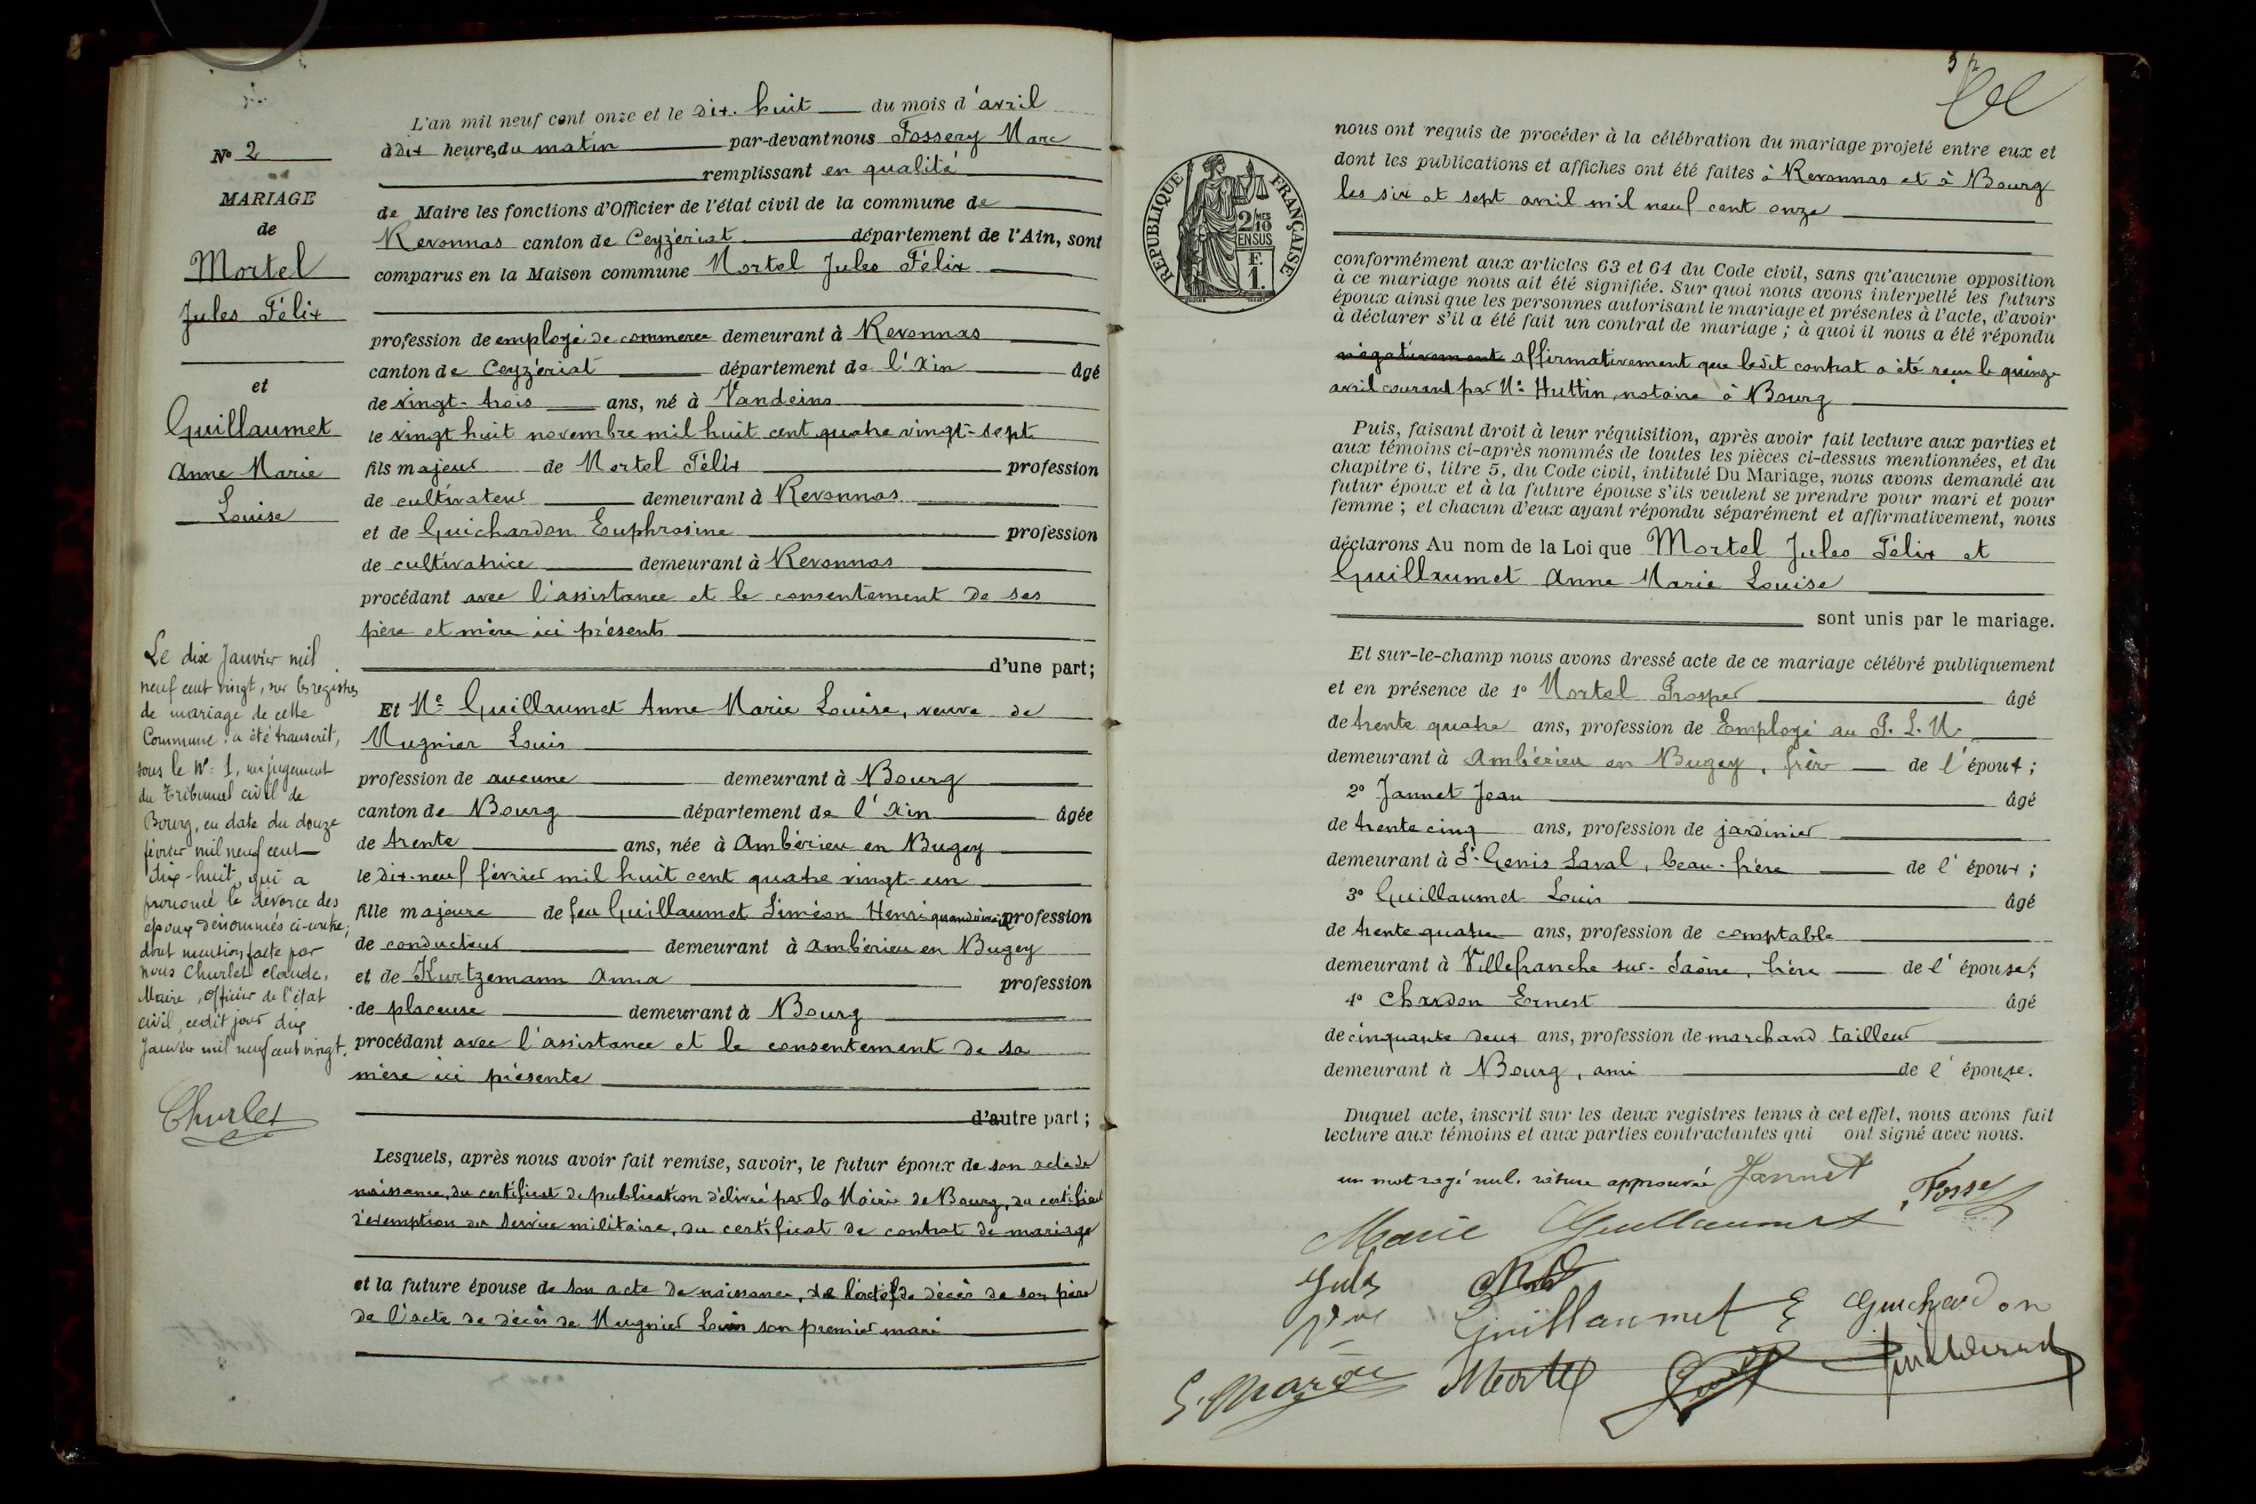 N° 2
MARIAGE
de
Mortel
Jules Félix
et
Guillaumet
Anne Marie
Louise
Le dix Janvier mil
neuf cent vingt, sur les registres
de mariage de cette
Commune a été transcrit,
sous le N° 1, un jugement
du Tribunal civil de
Bourg, en date du douze
février mil neuf cent
dix-huit, qui a
prononcé le divorce des
époux dénommés ci-contre;
dont mention faite par
nous Churlet Claude,
Maire, officier de l'état
civil, cedit jour dix
Janvier mil neuf cent vingt.
Churlet
L'an mil neuf cent onze et le dix-huit du mois d'avril
à dix heures du matin par-devant nous Fossery Marc
remplissant en qualité
de Maire les fonctions d'Officier de l'état civil de la commune de
Revonnas canton de Ceyzériat département de l'Ain, sont
comparus en la Maison commune Mortel Jules Félix
profession de employé de commerce demeurant à Revonnas
canton de Ceyzériat département de l'Ain âgé
de vingt-trois ans, né à Vandeins
le vingt huit novembre mil huit cent quatre vingt-sept
fils majeur de Mortel Félix profession
de cultivateur demeurant à Revonnas
et de Guichardon Euphrosine profession
de cultivatrice demeurant à Revonnas
procédant avec l'assistance et le consentement de ses
père et mère ici présents
d'une part;
Et Me Guillaumet Anne Marie Louise, veuve de
Mugnier Louis
profession de aucune demeurant à Bourg
canton de Bourg département de l'Ain âgée
de trente ans, née à Ambérieu en Bugey
le dix-neuf février mil huit cent quatre vingt-un
fille majeure de feu Guillaumet Siméon Henri quand vivait profession
de conducteur demeurant à Ambérieu en Bugey
et de Kurtzemann Anna profession
de placeuse demeurant à Bourg
procédant avec l'assistance et le consentement de sa
mère ici présente
d'autre part;
Lesquels, après nous avoir fait remise, savoir, le futur époux de son acte de
naissance, du certificat de publication délivré par la Mairie de Bourg, du certificat
d'exemption du service militaire, du certificat de contrat de mariage
et la future épouse de son acte de naissance, de l'acte de décès de son père
de l'acte de décès de Mugnier Louis son premier mari
nous ont requis de procéder à la célébration du mariage projeté entre eux et
dont les publications et affiches ont été faites à Revonnas et à Bourg
les six et sept avril mil neuf cent onze
RÉPUBLIQUE FRANÇAISE
2/10 MES
EN SUS
F.
1.
conformément aux articles 63 et 64 du Code civil, sans qu'aucune opposition
à ce mariage nous ait été signifiée. Sur quoi nous avons interpellé les futurs
époux ainsi que les personnes autorisant le mariage et présentes à l'acte, d'avoir
à déclarer s'il a été fait un contrat de mariage; à quoi il nous a été répondu
négativement affirmativement que ledit contrat a été reçu le quinze
avril courant par Me Huttin, notaire à Bourg
Puis, faisant droit à leur réquisition, après avoir fait lecture aux parties et
aux témoins ci-après nommés de toutes les pièces ci-dessus mentionnées, et du
chapitre 6, titre 5, du Code civil, intitulé Du Mariage, nous avons demandé au
futur époux et à la future épouse s'ils veulent se prendre pour mari et pour
femme; et chacun d'eux ayant répondu séparément et affirmativement, nous
déclarons Au nom de la Loi que Mortel Jules Félix et
Guillaumet Anne Marie Louise
sont unis par le mariage.
Et sur-le-champ nous avons dressé acte de ce mariage célébré publiquement
et en présence de 1° Mortel Prosper âgé
de trente quatre ans, profession de Employé au P. L. M.
demeurant à Ambérieu en Bugey, frère de l'époux;
2° Jannet Jean âgé
de trente cinq ans, profession de jardinier
demeurant à St Genis Laval, beau-frère de l'époux;
3° Guillaumet Louis âgé
de trente quatre ans, profession de comptable
demeurant à Villefranche sur-Saône, frère de l'épouse;
4° Chardon Ernest âgé
de cinquante deux ans, profession de marchand tailleur
demeurant à Bourg, ami de l'épouse.
Duquel acte, inscrit sur les deux registres tenus à cet effet, nous avons fait
lecture aux témoins et aux parties contractantes qui ont signé avec nous.
un mot rayé nul. rature approuvée Jannet
Marie Guillaumet
Vve Guillaumet E Guichardon
Mortel